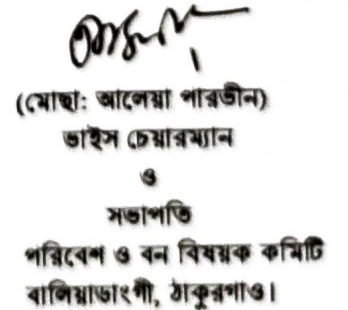 (মোছা: আলেয়া পারভীন)
ভাইস চেয়ারম্যান
ও
সভাপতি
পরিবেশ ও বন বিষয়ক কমিটি
বালিয়াডাংগী, ঠাকুরগাও।